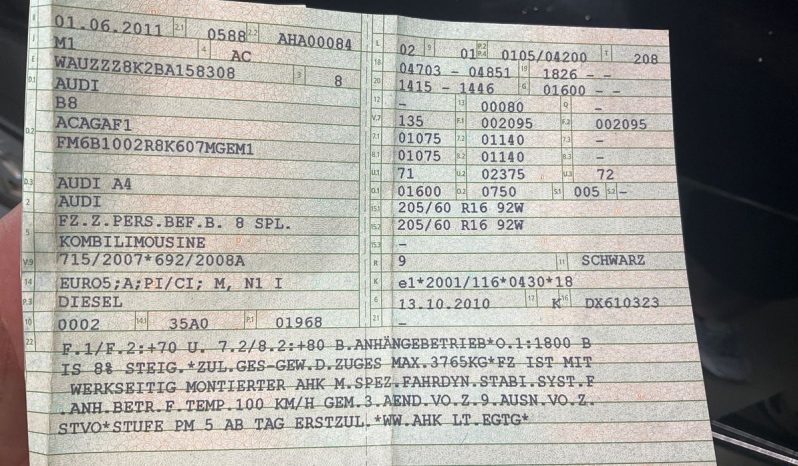 01.06.2011 2.1 0588 2.2 AHA00084
J M1 4 AC
E WAUZZZ8K2BA158308 3 8
D.1 AUDI
B8
D.2 ACAGAF1
FM6B1002R8K607MGEM1
D.3 AUDI A4
2 AUDI
5 FZ.Z.PERS.BEF.B. 8 SPL.
KOMBILIMOUSINE
V.9 715/2007*692/2008A
14 EURO5;A;PI/CI; M, N1 I
P.3 DIESEL
10 0002 14.1 35A0 P.1 01968
L 02 9 01 P.2 P.4 0105/04200 T 208
18 04703 - 04851 19 1826 - -
20 1415 - 1446 G 01600 - -
12 - 13 00080 Q -
V.7 135 F.1 002095 F.2 002095
7.1 01075 7.2 01140 7.3 -
8.1 01075 8.2 01140 8.3 -
U.1 71 U.2 02375 U.3 72
O.1 01600 O.2 0750 S.1 005 S.2 -
15.1 205/60 R16 92W
15.2 205/60 R16 92W
15.3 -
R 9 11 SCHWARZ
K e1*2001/116*0430*18
6 13.10.2010 17 K 16 DX610323
21 -
22 F.1/F.2:+70 U. 7.2/8.2:+80 B.ANHÄNGEBETRIEB*O.1:1800 B
IS 8% STEIG.*ZUL.GES-GEW.D.ZUGES MAX.3765KG*FZ IST MIT
WERKSEITIG MONTIERTER AHK M.SPEZ.FAHRDYN.STABI.SYST.F
.ANH.BETR.F.TEMP.100 KM/H GEM.3.AEND.VO.Z.9.AUSN.VO.Z.
STVO*STUFE PM 5 AB TAG ERSTZUL.*WW.AHK LT.EGTG*